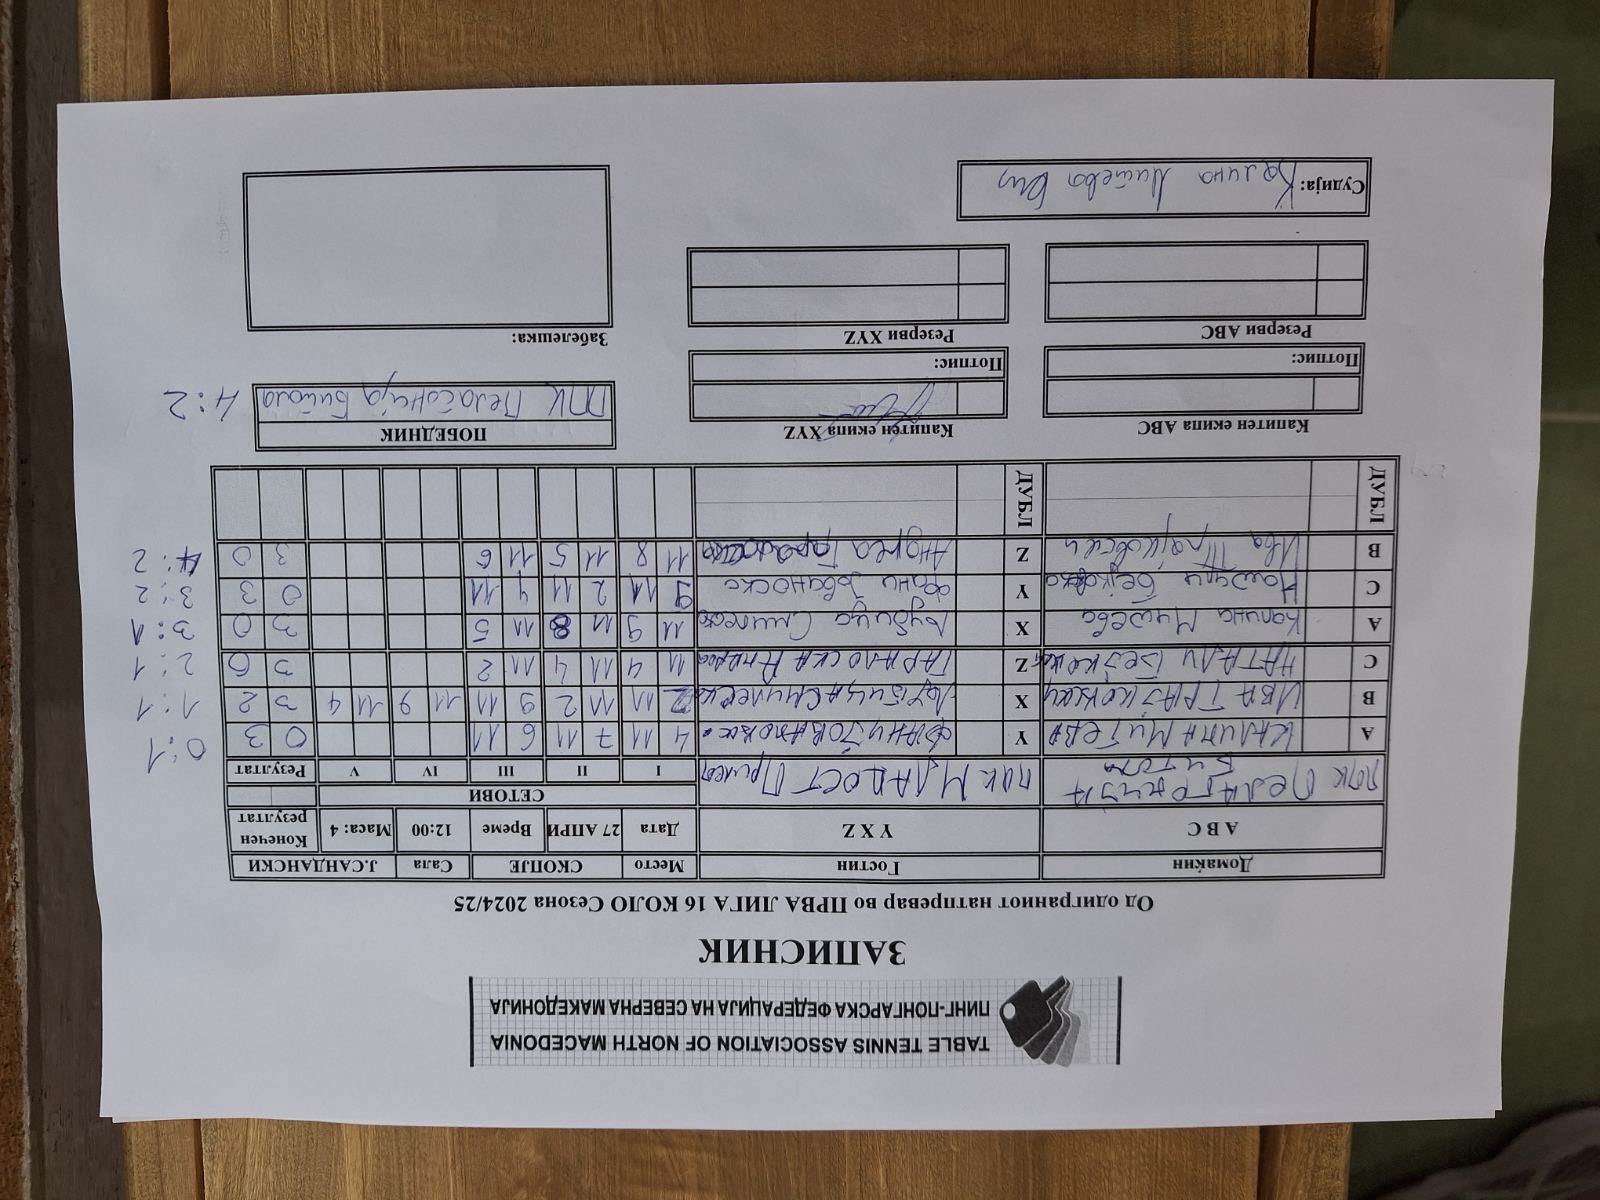 TABLE TENNIS ASSOCIATION OF NORTH MACEDONIA
ПИНГ-ПОНГАРСКА ФЕДЕРАЦИЈА НА СЕВЕРНА МАКЕДОНИЈА
ЗАПИСНИК
Од одиграниот натпревар во ПРВА ЛИГА 16 КОЛО Сезона 2024/25
Домаќин Гостин Место СКОПЈЕ Сала Ј.САНДАНСКИ
A B C Y X Z Дата 27 АПРИ Време 12:00 Маса: 4 Конечен резултат
ППК ПЕЛАГОНИЈА БИТОЛА ППК МЛАДОСТ Прилеп СЕТОВИ
I II III IV V Резултат
A КАЛИНА МИТЕВА Y ФАНИ 4 11 7 11 6 11 0 3 0:1
B ИВА ТРАЈКОВСКИ X ЉУБИЦА СМИЛЕСКА 2 11 11 2 9 11 11 9 11 4 3 2 1:1
C НАТАЛИ Z ГАРАЛОСКА Андреа 11 4 11 4 11 2 3 0 2:1
A Калина Митева X Љубица 11 9 11 8 11 5 3 0 3:1
C Натали Y Фани Јованоска 9 11 2 11 4 11 0 3 3:2
B Ива Трајковски Z Андреа 11 8 11 5 11 6 3 0 4:2
ДУБЛ ДУБЛ
Капитен екипа ABC Капитен екипа XYZ ПОБЕДНИК
ППК Пелагонија Битола 4:2
Потпис: Потпис:
Резерви ABC Резерви XYZ Забелешка:
Судија: Калина Митева